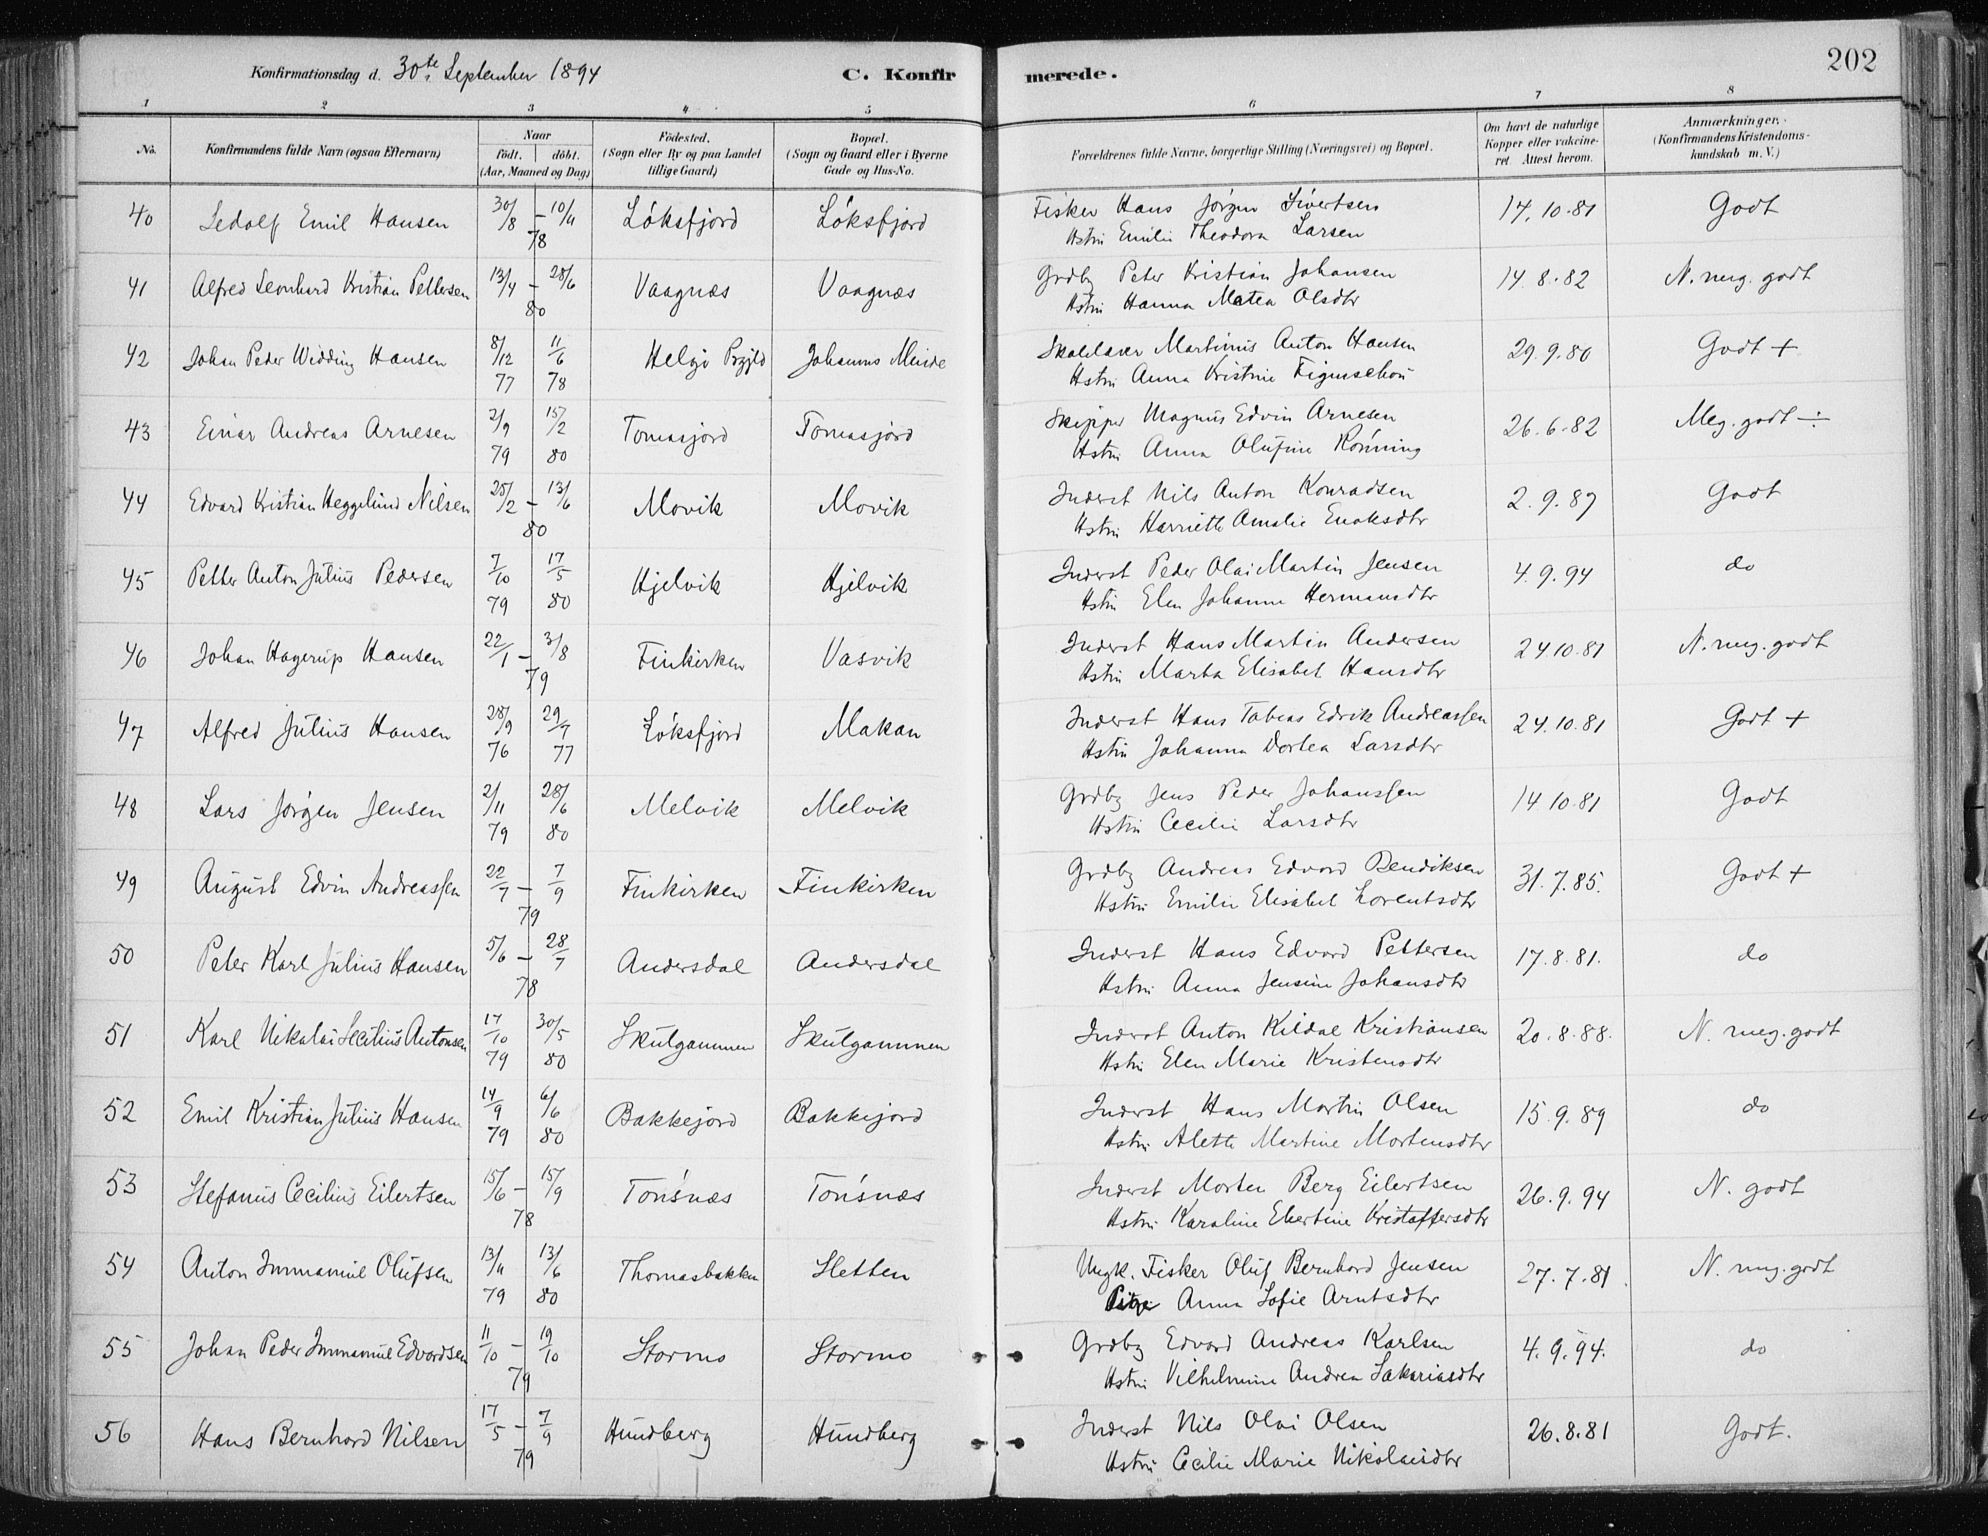 Konfirmationsdag d. 30te September 1894 C. Konfirmerede. 202
1 2 3 4 5 6 7 8
No. Konfirmandens fulde Navn (ogsaa Efternavn) Naar födt. döbt. (Aar, Maaned og Dag) Födested. (Sogn eller By og paa Landet tillige Gaard) Bopæl. (Sogn og Gaard eller i Byerne Gade og Hus-No. Forældrenes fulde Navne, borgerlige Stilling (Næringsvei) og Bopæl. Om havt de naturlige Kopper eller vakcineret. Attest herom. Anmærkninger. (Konfirmandens Kristendomskundskab m. V.)
40 Sedolf Emil Hansen 30/8 – 10/11 78 Löksfjord Löksfjord Fisker Hans Jörgen Sivertsen 14.10.81 Godt
Hstru Emilie Theodora Larsen
41 Alfred Leonhard Kristian Pettersen 13/4 – 28/6 80 Vaagnæs Vaagnæs Grdbg Peter Kristian Johansen 14.8.82 N. meg. godt
Hstru Hanna Matea Olsdtr
42 Johan Peder Widding Hansen 8/12 77 11/6 78 Helgö Johannes Minde Skolelærer Martinus Anton Hansen 29.9.80 Godt +
Hstru Anna Kristine
43 Einar Andreas Arnesen 2/9 79 15/2 80 Tomasjord Tomasjord Skipper Magnus Edvin Arnesen 26.6.82 Meg. godt ÷
Hstru Anna Olufine Rönning
44 Edvard Kristian Heggelund Nilsen 25/2 – 13/6 80 Movik Movik Inderst Nils Anton Konradsen 2.9.87 Godt
Hstru Harriette Amalie Enoksdtr
45 Petter Anton Julius Pedersen 7/10 79 17/5 80 Hjelvik Hjelvik Inderst Peder Olai Martin Jensen 4.9.94 do
Hstru Elen Johanna Hermansdtr
46 Johan Hagerup Hansen 22/1 – 3/8 79 Finkirken Vasvik Inderst Hans Martin Andersen 24.10.81 N. meg. godt
Hstru Marta Elisabet Hansdtr
47 Alfred Julius Hansen 28/9 76 29/7 77 Löksfjord Makan Inderst Hans Tobias Edrik Andreassen 24.10.81 Godt +
Hstru Johanna Dortea Larsdtr
48 Lars Jörgen Jensen 2/11 79 28/6 80 Melvik Melvik Grdbg Jens Peder Johanssen 14 10.81 Godt
Hstru Cecilie Larsdtr
49 August Edvin Andreassen 22/7 – 7/9 79 Finkirken Finkirken Grdbg Andreas Edvard Bendiksen 31.7.85. Godt +
Hstru Emilie Elisabet Lorentsdtr
50 Peter Karl Julius Hansen 5/6 – 28/7 78 Andersdal Andersdal Inderst Hans Edvard Pettersen 17.8.81. do
Hstru Anna Jensine Johansdtr
51 Karl Nikolai Secilius Antonsen 17/10 79 30/5 80 Skulgammen Skulgammen Inderst Anton Kildal Kristiansen 20.8.88. N. meg. godt
Hstru Elen Marie Kristensdtr
52 Emil Kristian Julius Hansen 14/9 79 6/6 80 Bakkejord Bakkejord Inderst Hans Martin Olsen 15.9.89 do
Hstru Alette Martine Mortensdtr
53 Stefanus Cecilius Eilertsen 15/6 – 15/9 78 Tonsnæs Tonsnæs Inderst Morten Berg Eilertsen 26.9.94 N. godt
Hstru Karoline Ebertine Kristoffersdtr
54 Anton Immanuel Olufsen 13/11 79 13/6 80 Thomasbakken Sletten Ungk. Fisker Oluf Bernhard Jensen 27.7.81. N. meg. godt
Pige Anna Sofie Arntsdtr
55 Johan Peder Immanuel Edvardsen 11/10 – 19/10 79 Stormo Stormo Grdbg Edvard Andreas Karlsen 4.9.94. do
Hstru Vilhelmine Andrea Sakariasdtr
56 Hans Bernhard Nilsen 17/5 – 7/9 79 Hundberg Hundberg Inderst Nils Olai Olsen 26.8.81 Godt.
Hstru Cecilie Marie Nikolaisdtr